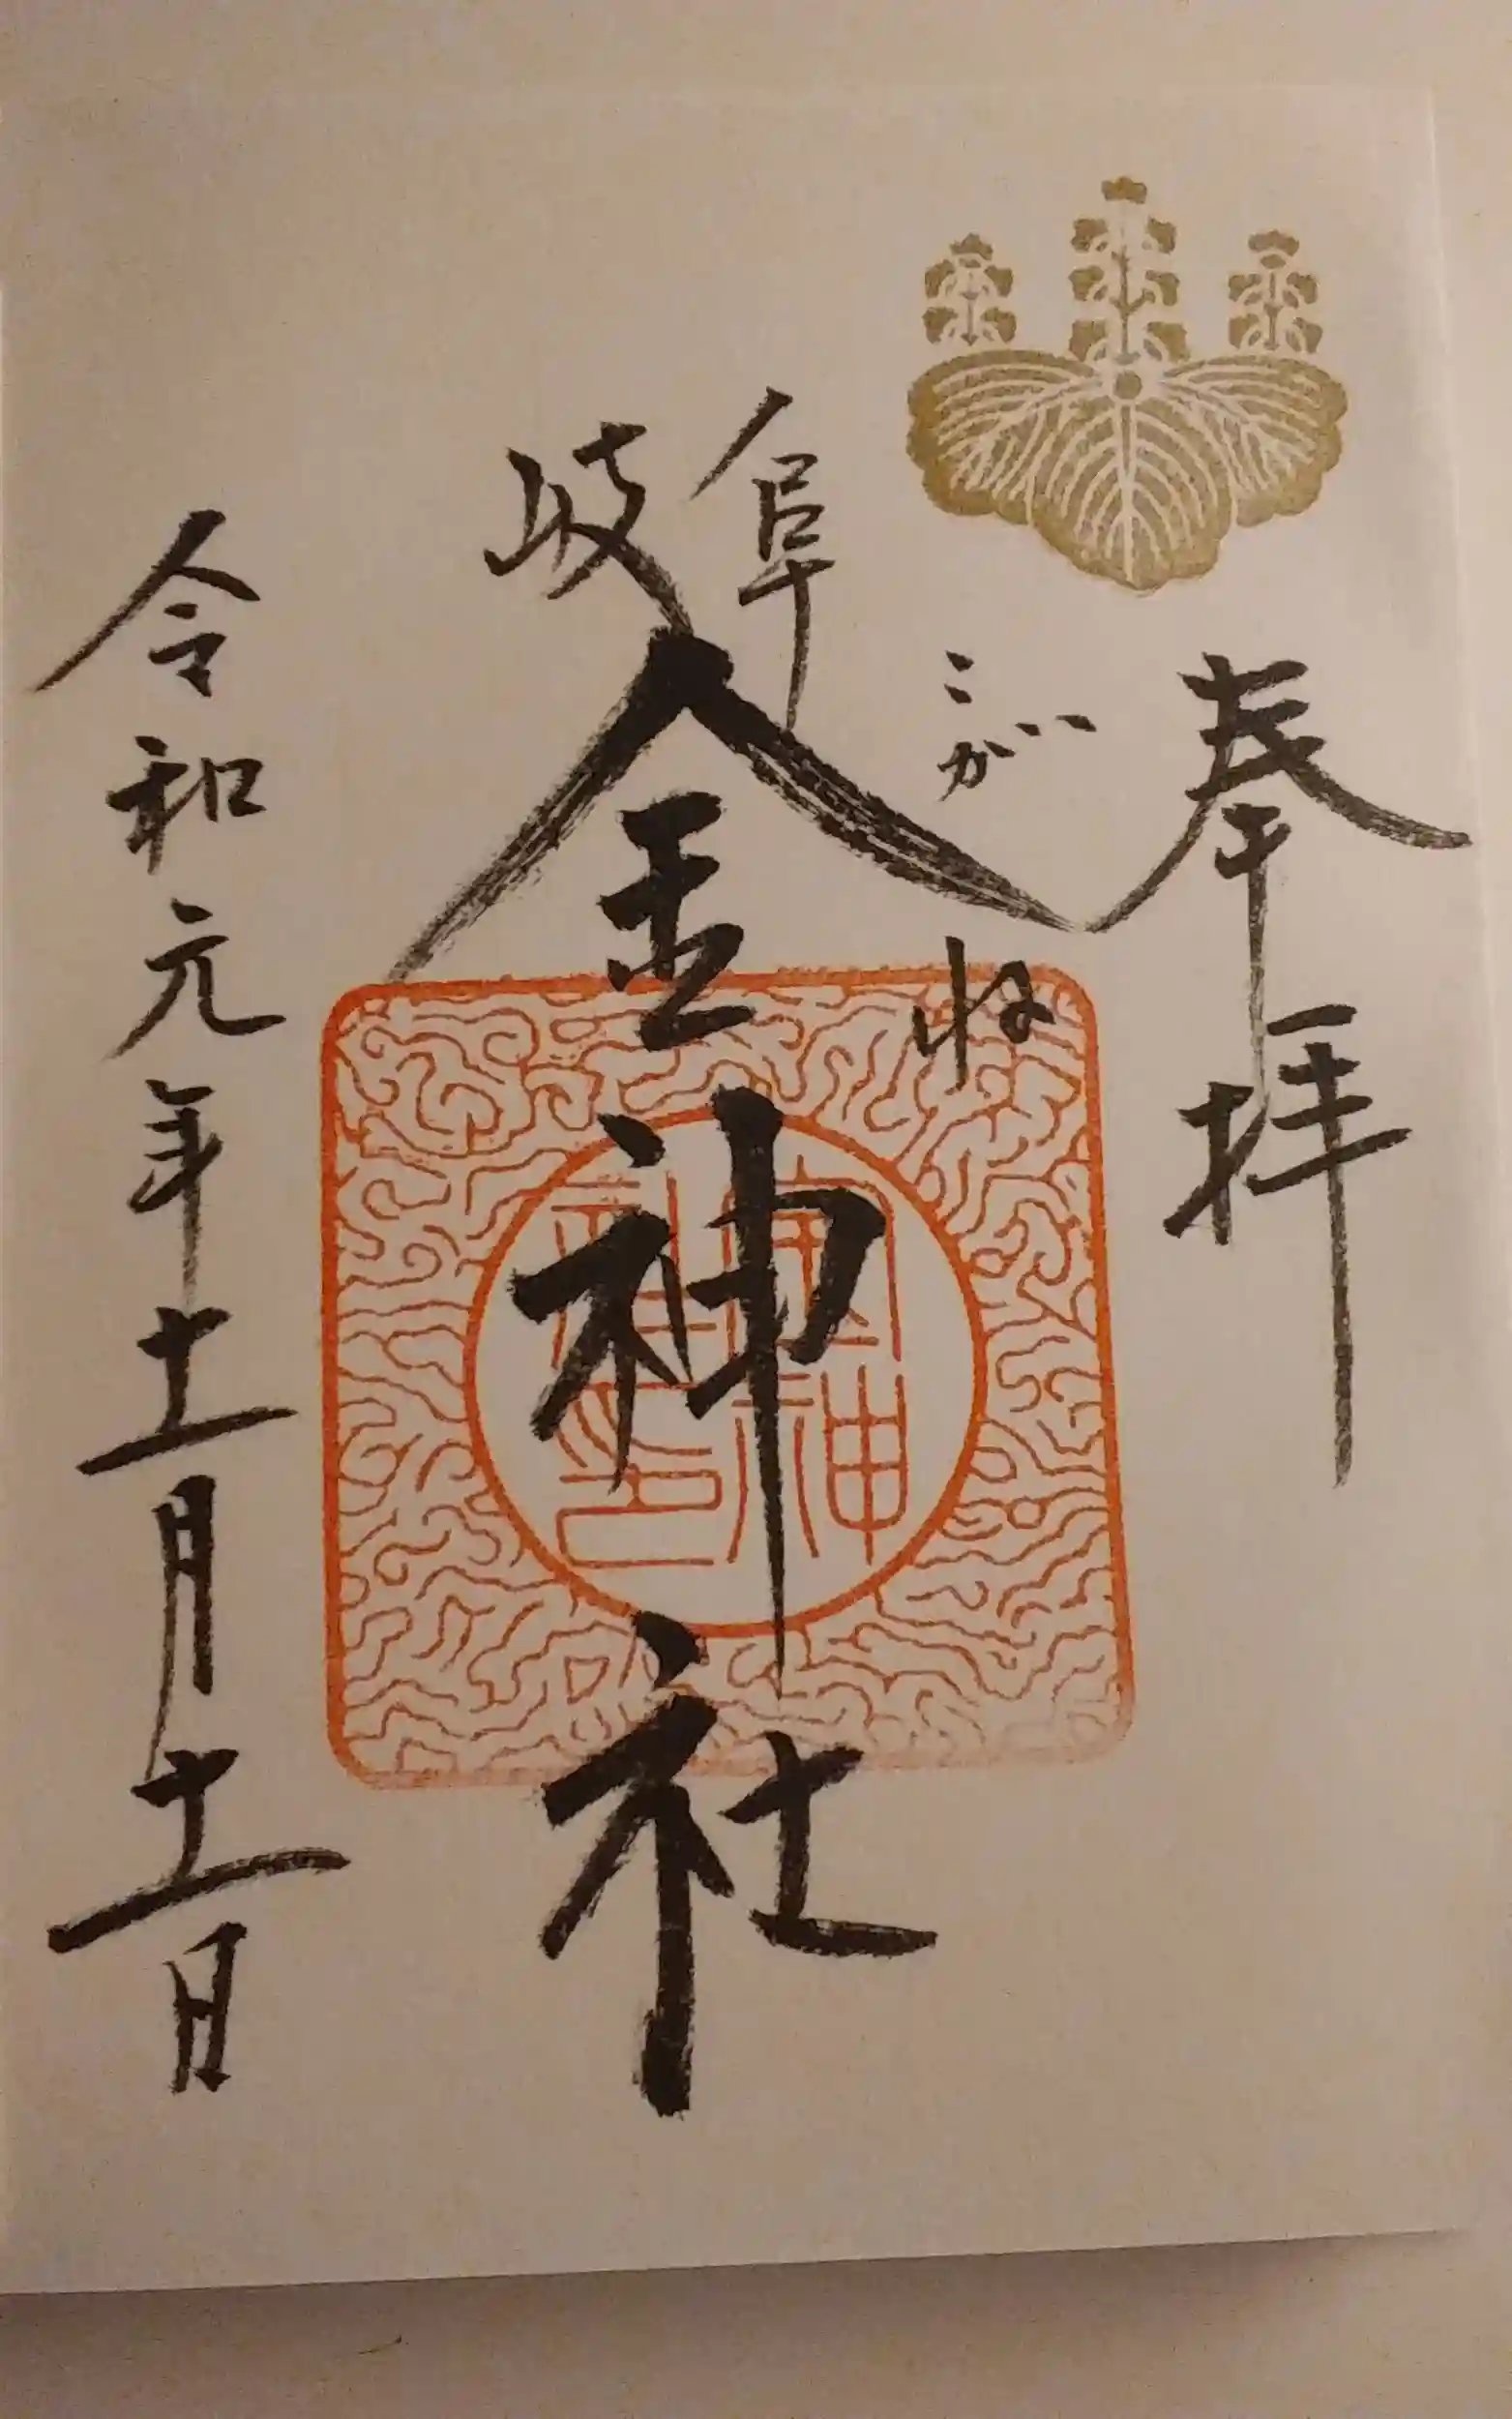 奉拝
こがね
岐阜
金神社
金神社印
令和元年十一月十一日